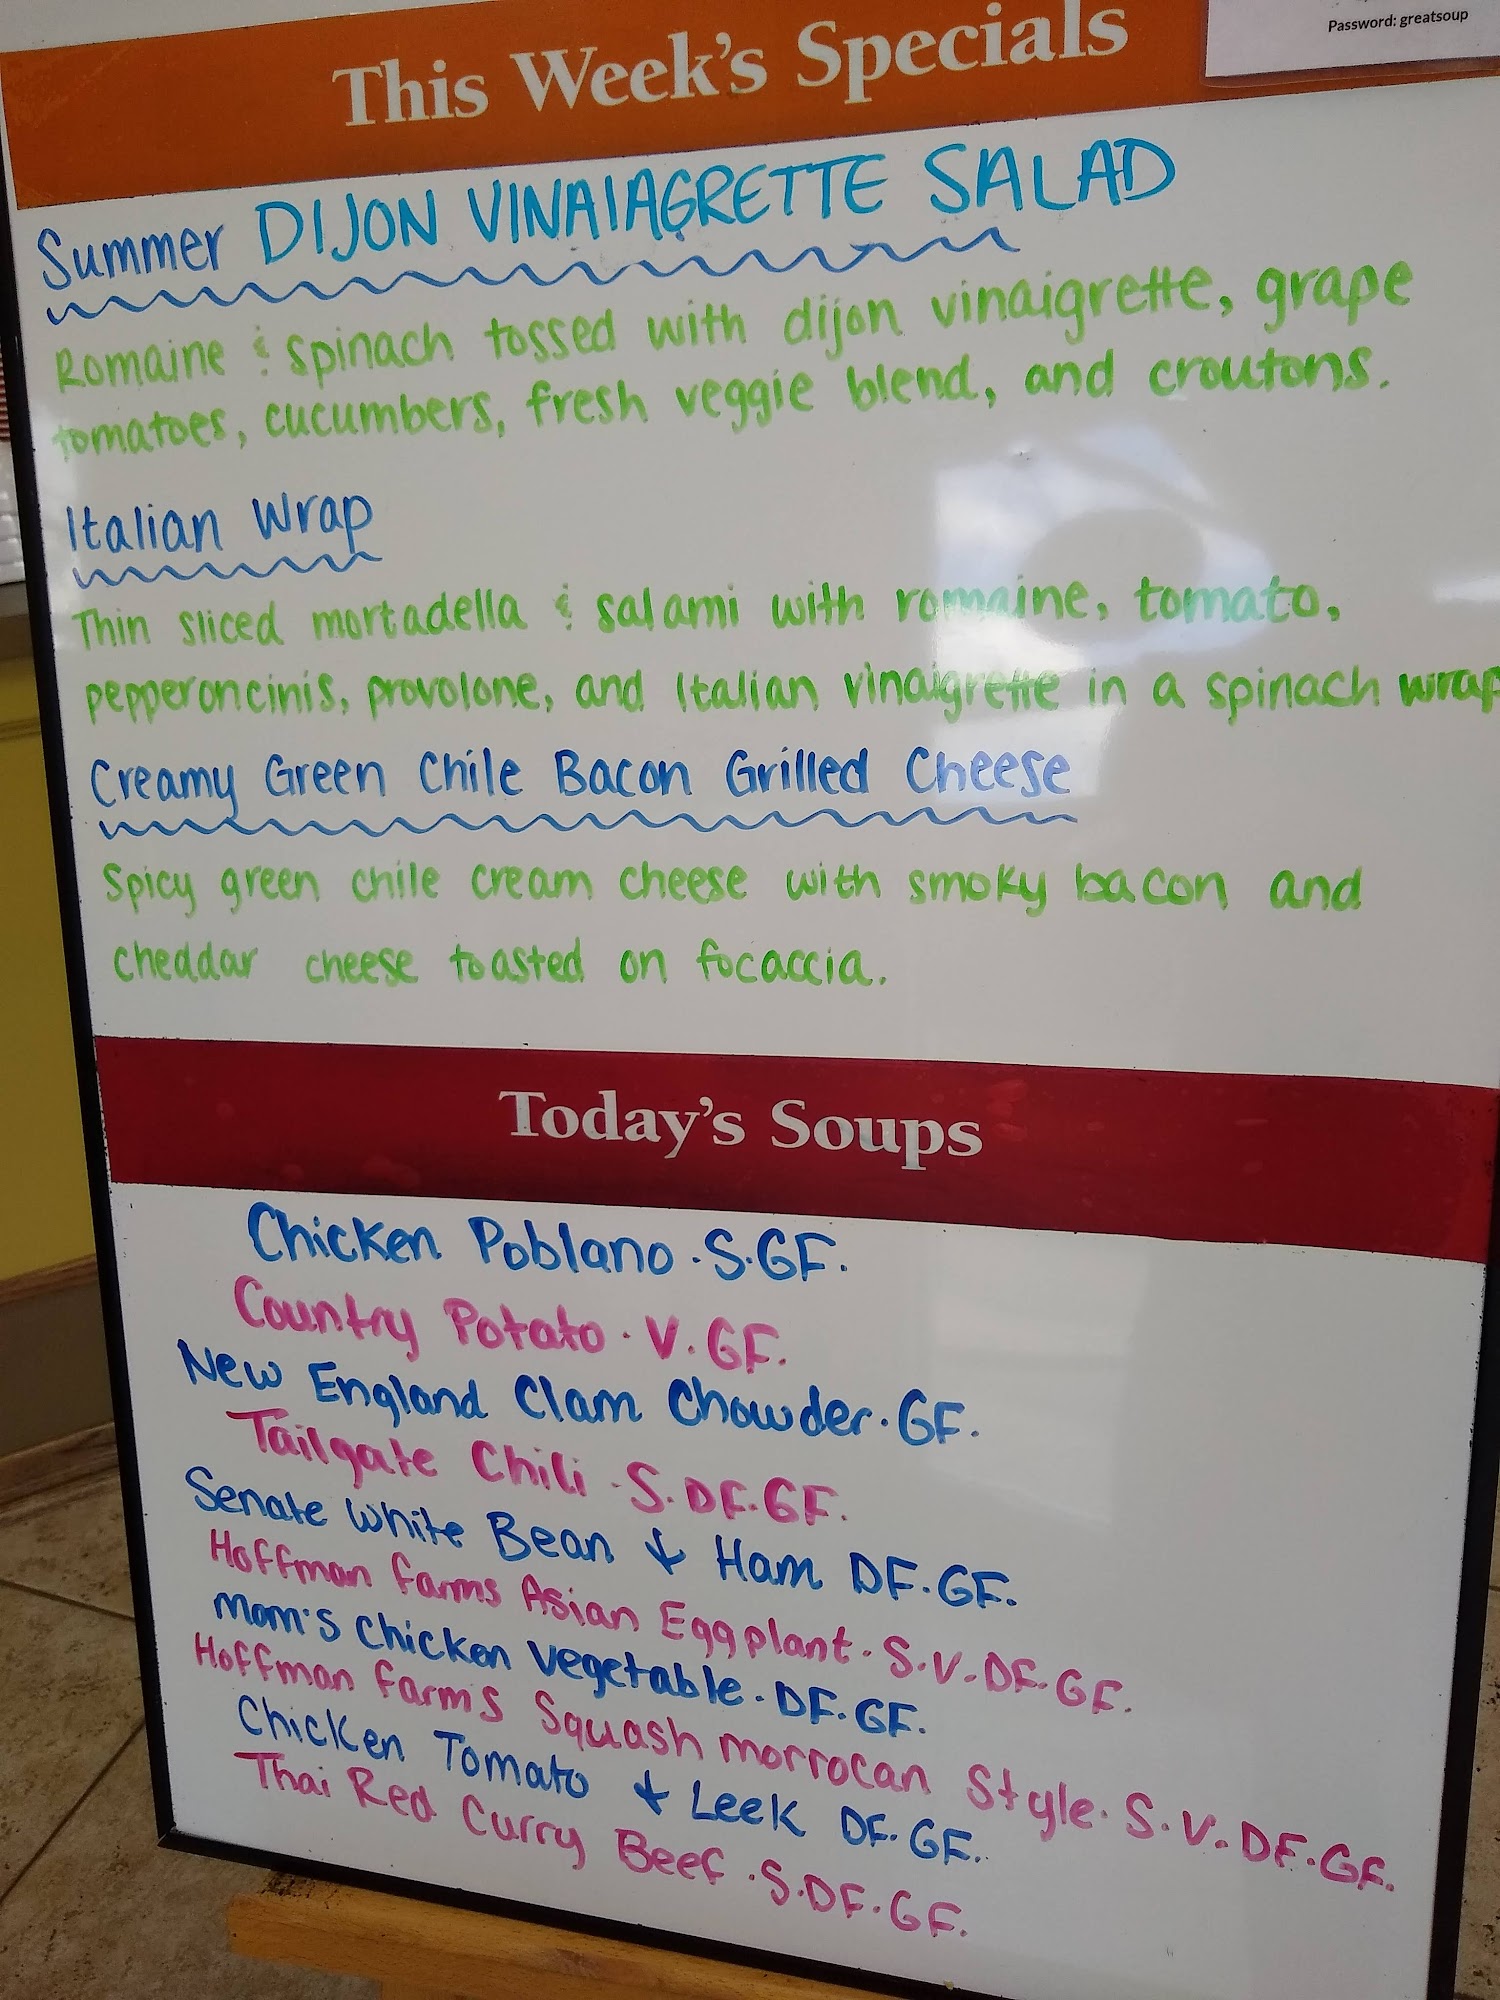 Password: greatsoup
This Week's Specials
Summer DIJON VINAIAGRETTE SALAD
Romaine & spinach tossed with dijon vinaigrette, grape
tomatoes, cucumbers, fresh veggie blend, and croutons.
Italian Wrap
Thin sliced mortadella & salami with romaine, tomato,
pepperoncinis, provolone, and Italian vinaigrette in a spinach wrap
Creamy Green Chile Bacon Grilled Cheese
Spicy green chile cream cheese with smoky bacon and
cheddar cheese toasted on focaccia.
Today's Soups
Chicken Poblano · S.GF.
Country Potato · V.GF.
New England Clam Chowder · GF.
Tailgate Chili · S.DF.GF.
Senate White Bean & Ham DF.GF.
Hoffman farms Asian Eggplant · S.V.DF.GF.
Mom's Chicken Vegetable · DF.GF.
Hoffman farms Squash morrocan Style · S.V.DF.GF.
Chicken Tomato & Leek DF.GF.
Thai Red Curry Beef · S.DF.GF.